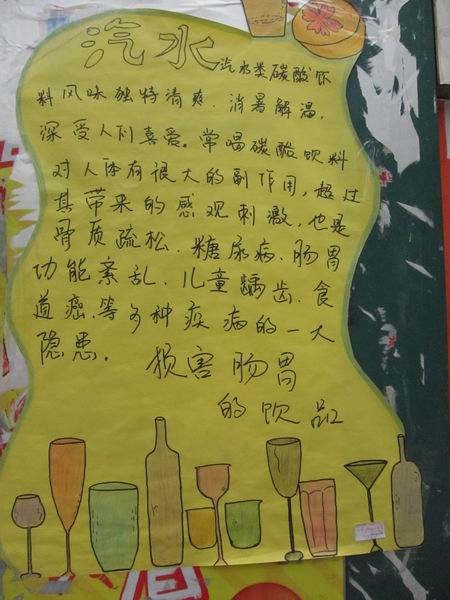 汽水 汽水类碳酸饮
料风味独特清爽、消暑解温,
深受人们喜爱。常喝碳酸饮料
对人体有很大的副作用,超过
其带来的感观刺激,也是
骨质疏松、糖尿病、肠胃
功能紊乱、儿童龋齿、食
道癌、等多种疾病的一大
隐患。
损害肠胃
的饮品